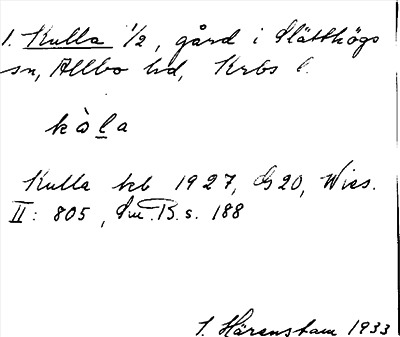 1. Kulla 1/2, gård i Slätthögs
sn, Allbo hd, Krbs l.
kòla
Kulla kb 1927, G 20, Wies.
II: 805, Sm.B. s. 188
S. Härenstam 1933